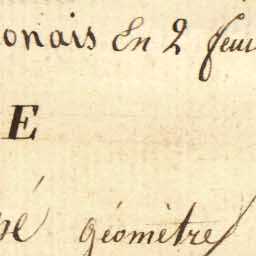 onais En 2 feui
E
pé géomètre